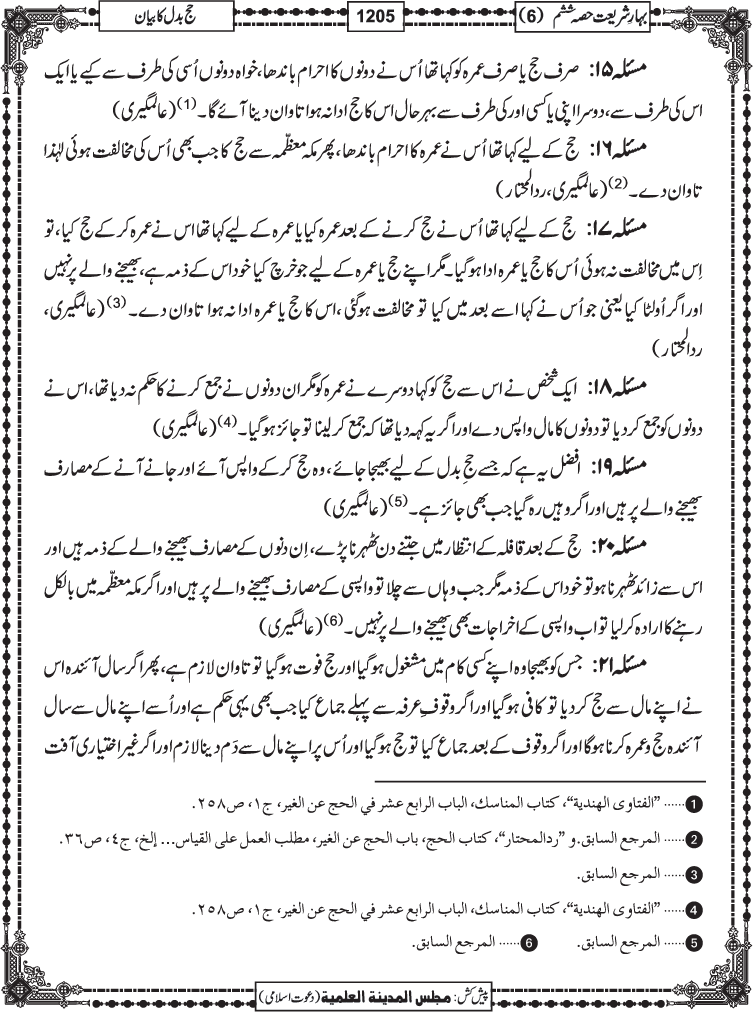 بہارِ شریعت حصہ ششم (6)
1205
حج بدل کا بیان
مسئلہ ۱۵: صرف حج یا صرف عمرہ کو کہا تھا اُس نے دونوں کا احرام باندھا، خواہ دونوں اُسی کی طرف سے کیے یا ایک
اس کی طرف سے، دوسرا اپنی یا کسی اور کی طرف سے بہر حال اس کا حج ادا نہ ہوا تاوان دینا آئے گا۔ (1) (عالمگیری)
مسئلہ ۱۶: حج کے لیے کہا تھا اُس نے عمرہ کا احرام باندھا، پھر مکہ معظّمہ سے حج کا جب بھی اُس کی مخالفت ہوئی لہٰذا
تاوان دے۔ (2) (عالمگیری، ردالمحتار)
مسئلہ ۱۷: حج کے لیے کہا تھا اُس نے حج کرنے کے بعد عمرہ کیا یا عمرہ کے لیے کہا تھا اس نے عمرہ کر کے حج کیا، تو
اِس میں مخالفت نہ ہوئی اُس کا حج یا عمرہ ادا ہوگیا۔ مگر اپنے حج یا عمرہ کے لیے جو خرچ کیا خود اس کے ذمہ ہے، بھیجنے والے پر نہیں
اور اگر اُولٹا کیا یعنی جو اُس نے کہا اسے بعد میں کیا تو مخالفت ہوگئی، اس کا حج یا عمرہ ادا نہ ہوا تاوان دے۔ (3) (عالمگیری،
ردالمحتار)
مسئلہ ۱۸: ایک شخص نے اس سے حج کو کہا دوسرے نے عمرہ کو مگر ان دونوں نے جمع کرنے کا حکم نہ دیا تھا، اس نے
دونوں کو جمع کر دیا تو دونوں کا مال واپس دے اور اگر یہ کہہ دیا تھا کہ جمع کر لینا تو جائز ہوگیا۔ (4) (عالمگیری)
مسئلہ ۱۹: افضل یہ ہے کہ جسے حجِ بدل کے لیے بھیجا جائے، وہ حج کر کے واپس آئے اور جانے آنے کے مصارف
بھیجنے والے پر ہیں اور اگر وہیں رہ گیا جب بھی جائز ہے۔ (5) (عالمگیری)
مسئلہ ۲۰: حج کے بعد قافلہ کے انتظار میں جتنے دن ٹھہرنا پڑے، اِن دنوں کے مصارف بھیجنے والے کے ذمہ ہیں اور
اس سے زائد ٹھہرنا ہو تو خود اس کے ذمہ مگر جب وہاں سے چلا تو واپسی کے مصارف بھیجنے والے پر ہیں اور اگر مکہ معظّمہ میں بالکل
رہنے کا ارادہ کر لیا تو اب واپسی کے اخراجات بھی بھیجنے والے پر نہیں۔ (6) (عالمگیری)
مسئلہ ۲۱: جس کو بھیجا وہ اپنے کسی کام میں مشغول ہوگیا اور حج فوت ہوگیا تو تاوان لازم ہے، پھر اگر سال آئندہ اس
نے اپنے مال سے حج کر دیا تو کافی ہوگیا اور اگر وقوفِ عرفہ سے پہلے جماع کیا جب بھی یہی حکم ہے اور اُسے اپنے مال سے سال
آئندہ حج و عمرہ کرنا ہوگا اور اگر وقوف کے بعد جماع کیا تو حج ہوگیا اور اُس پر اپنے مال سے دَم دینا لازم اور اگر غیر اختیاری آفت
1 ...... "الفتاوی الهندية"، كتاب المناسك، الباب الرابع عشر في الحج عن الغير، ج١، ص٢٥٨.
2 ...... المرجع السابق.و "ردالمحتار"، كتاب الحج، باب الحج عن الغير، مطلب العمل على القياس... إلخ، ج٤، ص٣٦.
3 ...... المرجع السابق.
4 ...... "الفتاوی الهندية"، كتاب المناسك، الباب الرابع عشر في الحج عن الغير، ج١، ص٢٥٨.
5 ...... المرجع السابق. 6 ...... المرجع السابق.
پیش کش: مجلس المدينة العلمية (دعوت اسلامی)